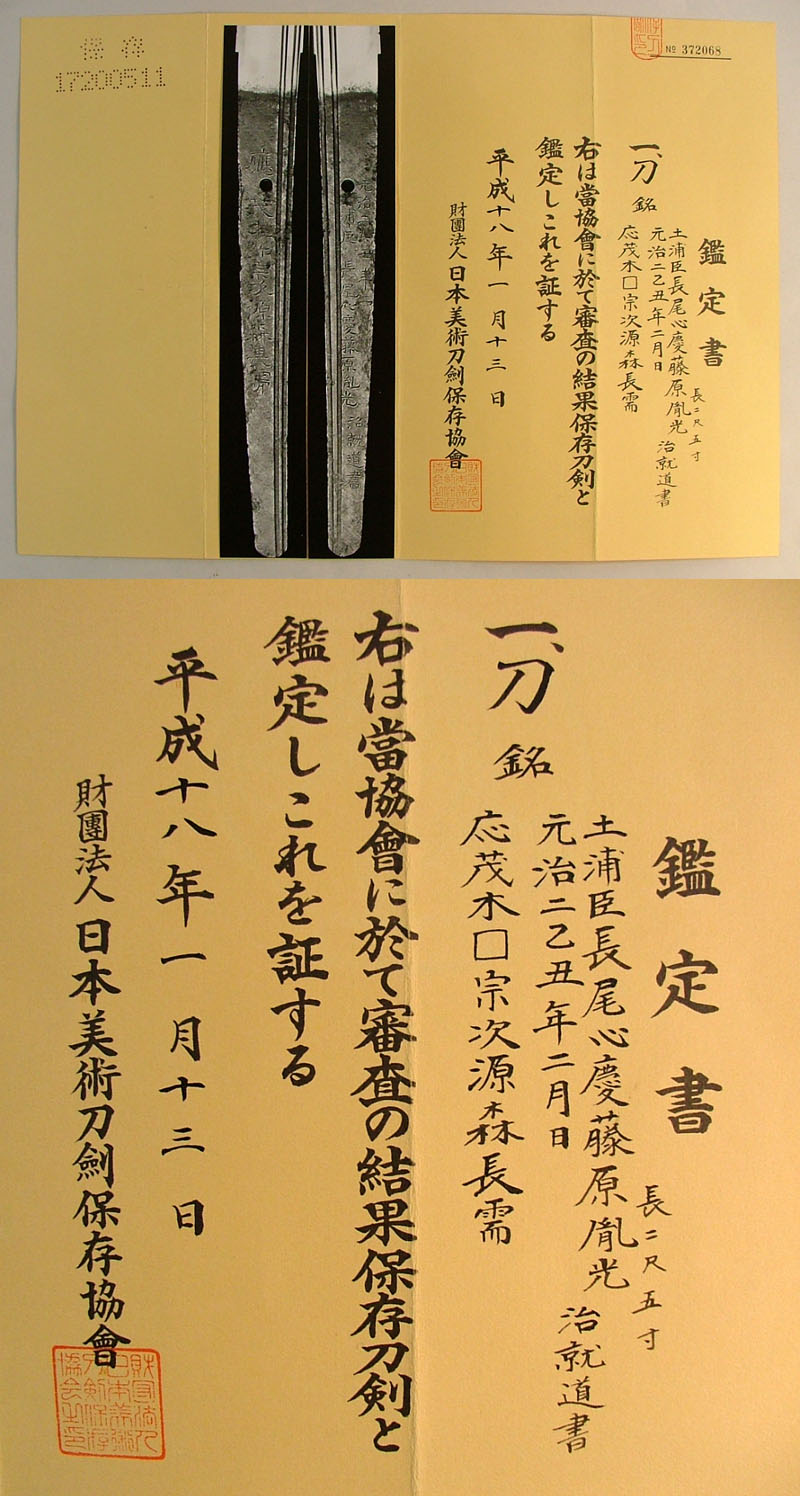 保存
17200511
№ 372068
鑑定書
長二尺五寸
一、刀 銘
土浦臣長尾心慶藤原胤光 治就道書
元治二乙丑年二月日
応茂木□宗次源森長需
右は當協會に於て審査の結果保存刀剣と
鑑定しこれを証する
平成十八年一月十三日
財團法人日本美術刀劍保存協會
鑑定書
長二尺五寸
一、刀 銘
土浦臣長尾心慶藤原胤光 治就道書
元治二乙丑年二月日
応茂木□宗次源森長需
右は當協會に於て審査の結果保存刀剣と
鑑定しこれを証する
平成十八年一月十三日
財團法人日本美術刀劍保存協會